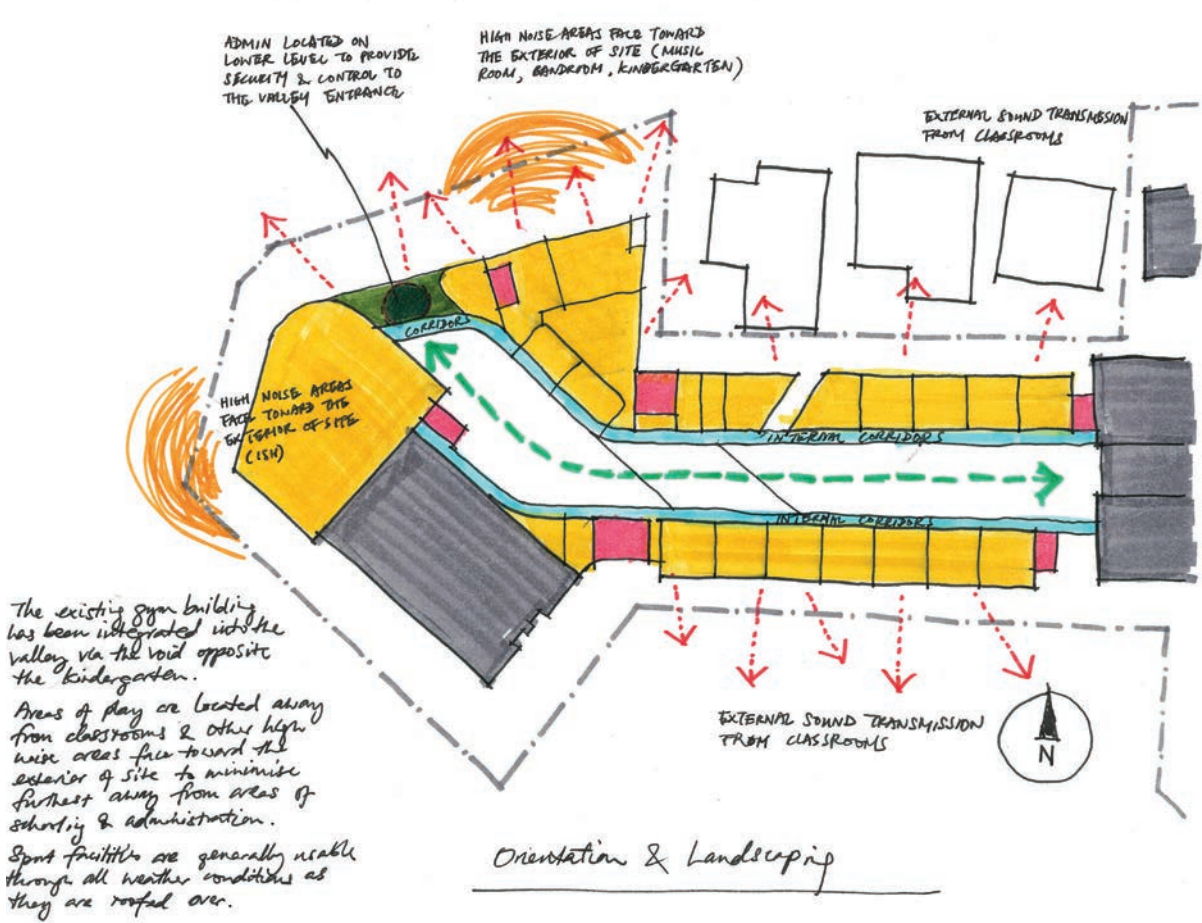 ADMIN LOCATED ON
LOWER LEVEL TO PROVIDE
SECURITY & CONTROL TO
THE VALLEY ENTRANCE
HIGH NOISE AREAS FACE TOWARD
THE EXTERIOR OF SITE (MUSIC
ROOM, BANDROOM, KINDERGARTEN)
EXTERNAL SOUND TRANSMISSION
FROM CLASSROOMS
CORRIDORS
HIGH NOISE AREAS
FACE TOWARD THE
EXTERIOR OF SITE
(ISH)
INTERNAL CORRIDORS
INTERNAL CORRIDORS
The existing gym building
has been integrated into the
valley via the void opposite
the kindergarten.
Areas of play are located away
from classrooms & other high
noise areas face toward the
exterior of site to minimise
furthest away from areas of
schooling & administration.
Sport facilities are generally usable
through all weather conditions as
they are roofed over.
EXTERNAL SOUND TRANSMISSION
FROM CLASSROOMS
N
Orientation & Landscaping